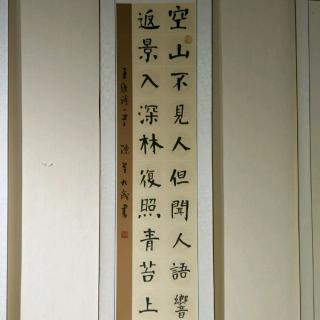 空山不見人但聞人語響
返景入深林復照青苔上
王維詩一首